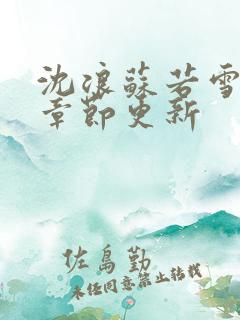 沈浪蘇若雪
章節更新
佐島勤
未经同意禁止转载